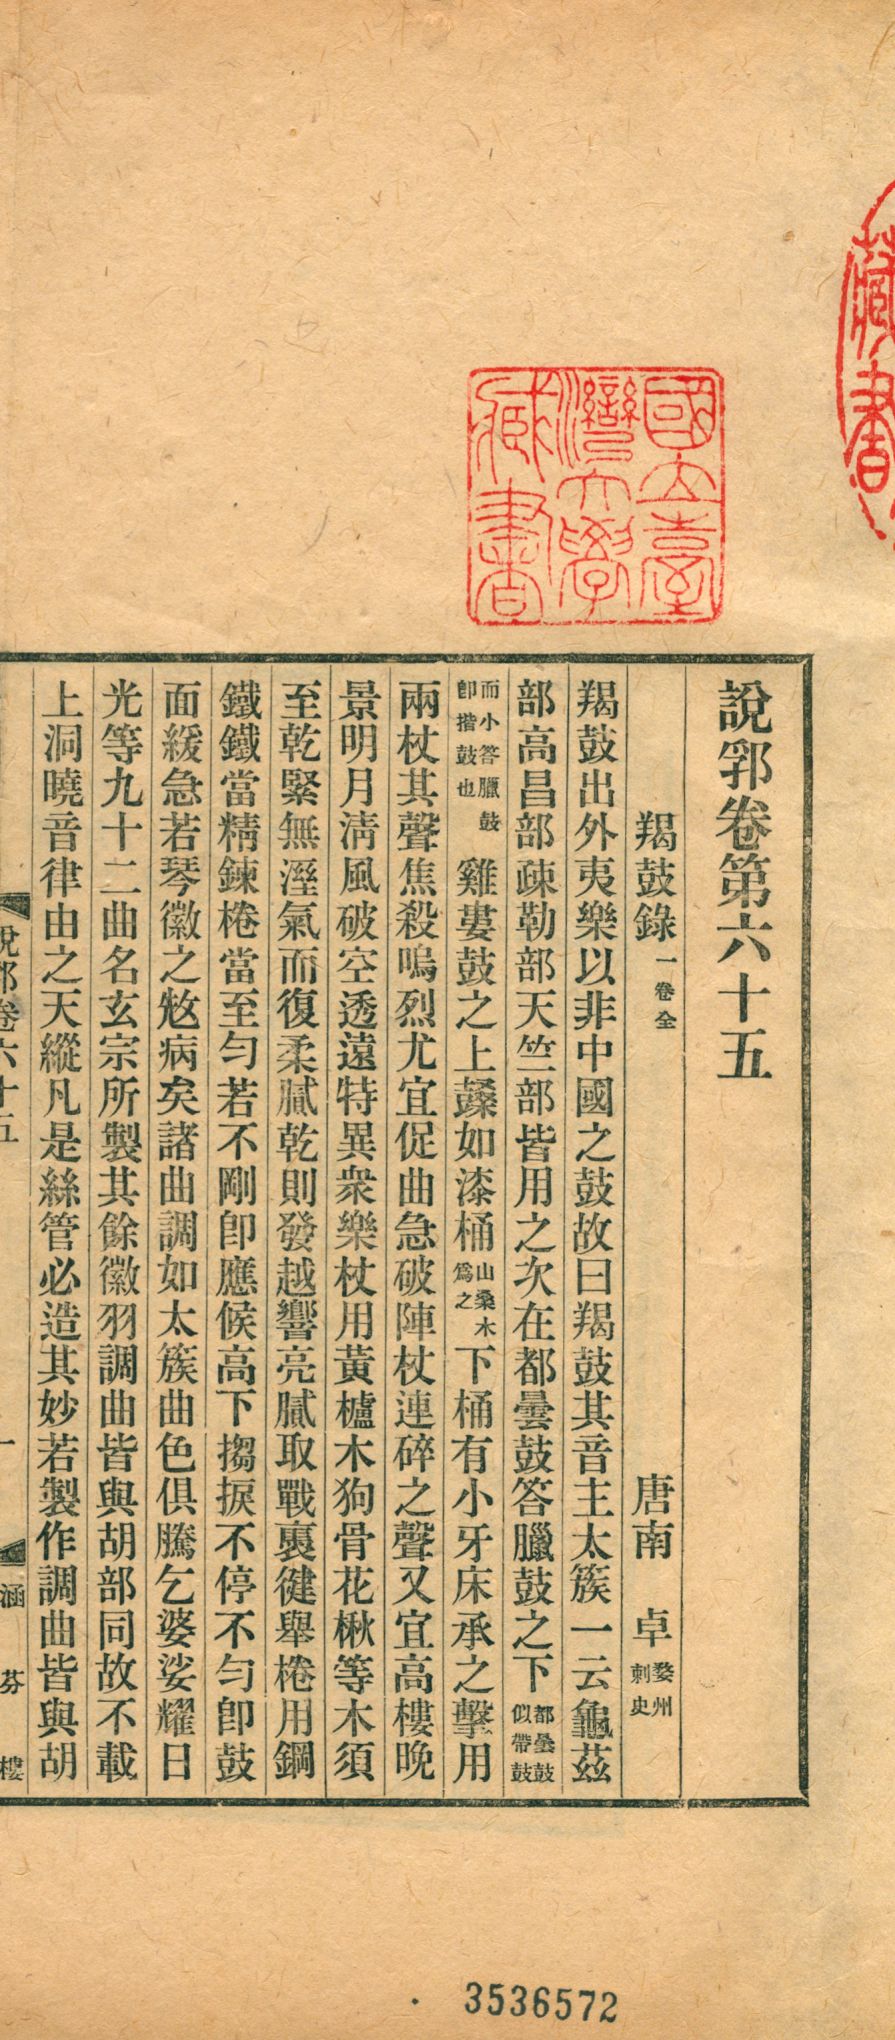 說郛卷第六十五
羯鼓錄一卷全 唐南 卓婺州刺史
羯鼓出外夷樂以非中國之鼓故曰羯鼓其音主太簇一云龜茲
部高昌部疎勒部天竺部皆用之次在都曇鼓答臘鼓之下都曇鼓似帶鼓
而小答臘鼓卽揩鼓也雞婁鼓之上鼕如漆桶山桑木爲之下桶有小牙床承之擊用
兩杖其聲焦殺嗚烈尤宜促曲急破陣杖連碎之聲又宜高樓晚
景明月淸風破空透遠特異衆樂杖用黃櫨木狗骨花楸等木須
至乾緊無溼氣而復柔膩乾則發越響亮膩取戰褭健舉棬用鋼
鐵鐵當精鍊棬當至勻若不剛卽應候高下搊捩不停不勻卽鼓
面緩急若琴徽之㢮病矣諸曲調如太簇曲色俱騰乞婆娑耀日
光等九十二曲名玄宗所製其餘徽羽調曲皆與胡部同故不載
上洞曉音律由之天縱凡是絲管必造其妙若製作調曲皆與胡
說郛卷六十五
一
涵芬樓
國立臺灣大學藏書
藏書
3536572